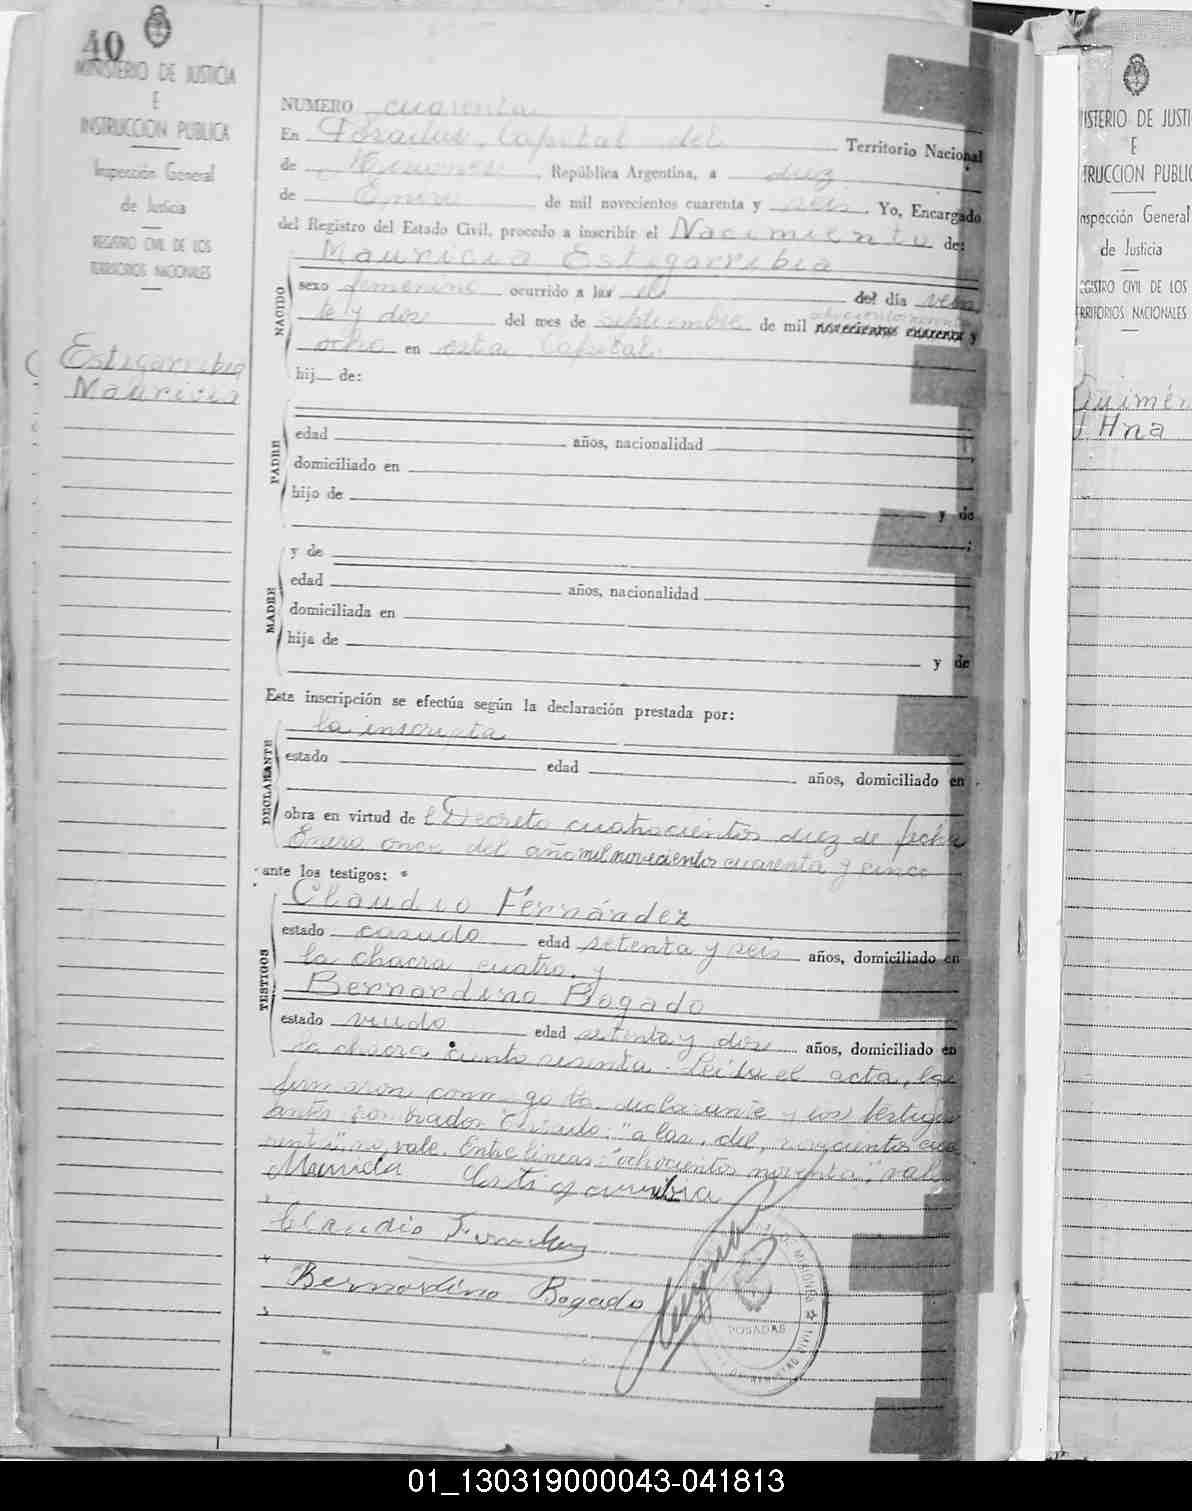 40
MINISTERIO DE JUSTICIA
E
INSTRUCCION PUBLICA
Inspección General
de Justicia
REGISTRO CIVIL DE LOS
TERRITORIOS NACIONALES
Estigarribia
Mauricia
NUMERO cuarenta
En Posadas, Capital del Territorio Nacional
de Misiones, República Argentina, a diez
de Enero de mil novecientos cuarenta y seis. Yo, Encargado
del Registro del Estado Civil, procedo a inscribir el Nacimiento de:
Mauricia Estigarribia
NACIDO
sexo femenino ocurrido a las el del día vein
te y dos del mes de septiembre de mil ochocientos noventa novecientos cuarenta y
ocho en esta Capital.
hij de:
PADRE
edad años, nacionalidad
domiciliado en
hijo de y de
;
y de
MADRE
edad años, nacionalidad
domiciliada en
hija de y de
Esta inscripción se efectúa según la declaración prestada por:
la inscripta
DECLARANTE
estado edad años, domiciliado en
obra en virtud de el Decreto cuatrocientos diez de fecha
Enero once del año mil novecientos cuarenta y cinco
ante los testigos:
Claudio Fernández
TESTIGOS
estado casado edad setenta y seis años, domiciliado en
la chacra cuatro, y
Bernardino Bogado
estado viudo edad setenta y dos años, domiciliado en
la chacra ciento sesenta. Leída el acta, la
firmaron conmigo la declarante y los testigos
antes nombrados. "a las, del, novecientos cua
renta" no vale. Entre lineas: "ochocientos noventa", vale
Estigarribia
Claudio Fernandez
Bernardino Bogado
MISIONES
POSADAS
MINISTERIO DE JUSTI
E
TRUCCION PUBLIC
nspección General
de Justicia
GISTRO CIVIL DE LOS
RRITORIOS NACIONALES
01_130319000043-041813